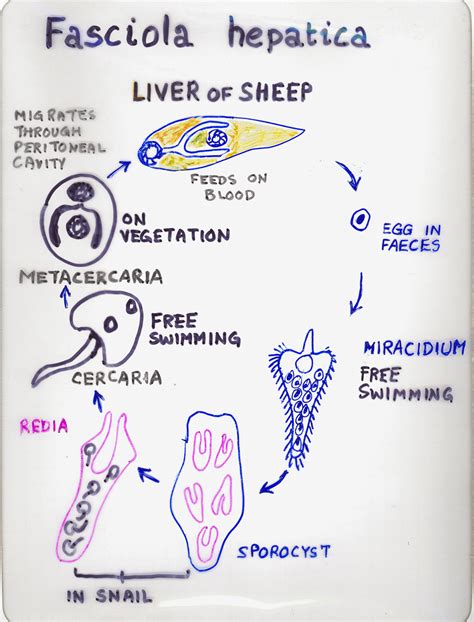 Fasciola hepatica
LIVER OF SHEEP
MIGRATES
THROUGH
PERITONEAL
CAVITY
FEEDS ON
BLOOD
ON
VEGETATION
EGG IN
FAECES
METACERCARIA
FREE
SWIMMING
MIRACIDIUM
FREE
SWIMMING
CERCARIA
REDIA
SPOROCYST
IN SNAIL